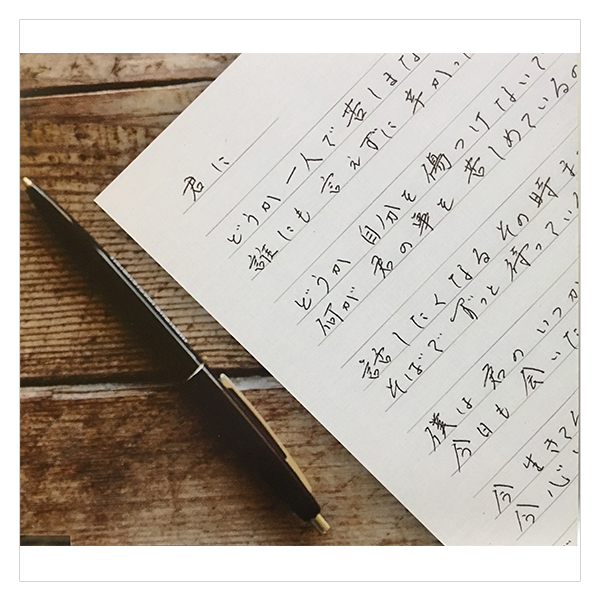 君に
どうか 一人で 苦しまな
誰にも 言えずに 辛かっ
どうか 自分を 傷つけないで
何が 君の事を 苦しめているの
話したくなる その時ま
そばで ずっと 待ってい
僕は 君の いつか
今日も 会いた
今 生きて
今 心